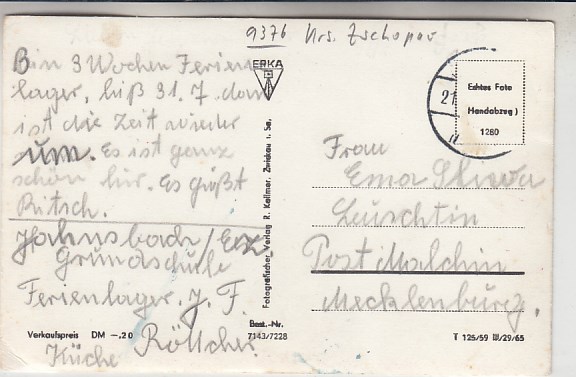 9376 Krs. Zschopau
Bin 3 Wochen Ferien
lager, biß 31. 7. dan
ist die Zeit wieder
um. Es ist ganz
schön hir. Es grüßt
Ritsch.
Jahnsbach / Erz
Grundschule
Ferienlager. J. F.
Röttcher.
Küche
Verkaufspreis DM –.20
ERKA
Fotografischer Verlag R. Kallmer, Zwickau i. Sa.
Best.-Nr.
7143/7228
21
Echtes Foto
Handabzug )
1280
Frau
Ema
Leuschtin
Post Malchin
Mecklenburg.
T 125/59 III/29/65